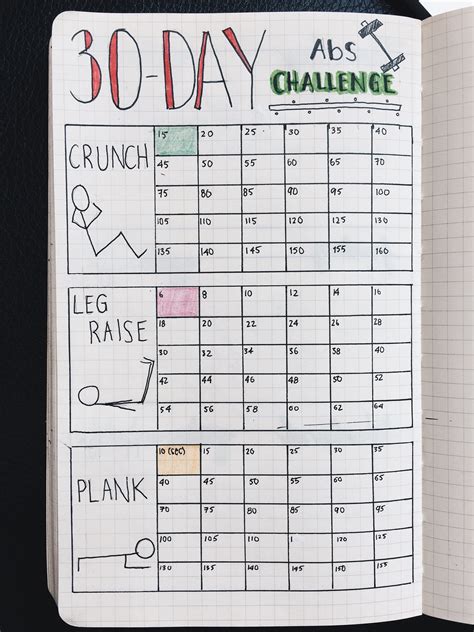 30-DAY
Abs
CHALLENGE
CRUNCH
15 20 25 30 35 40
45 50 55 60 65 70
75 80 85 90 95 100
105 110 115 120 125 130
135 140 145 150 155 160
LEG
RAISE
6 8 10 12 14 16
18 20 22 24 26 28
30 32 34 36 38 40
42 44 46 48 50 52
54 56 58 60 62 64
PLANK
10 (SEC) 15 20 25 30 35
40 45 50 55 60 65
70 75 80 85 90 95
100 105 110 115 120 125
130 135 140 145 150 155